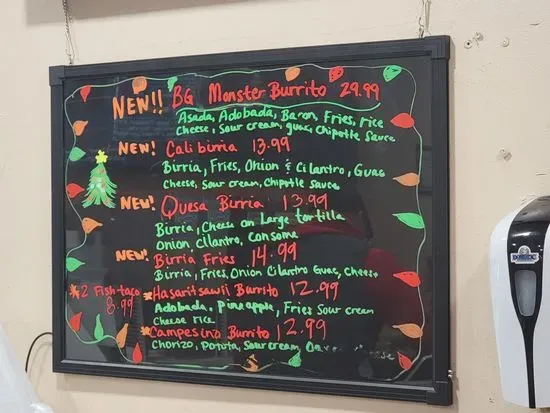 NEW!! BG Monster Burrito 29.99
Asada, Adobada, Bacon, Fries, rice
Cheese, Sour cream, guac, Chipotle Sauce
NEW! Calibirria 13.99
Birria, Fries, Onion & Cilantro, Guac
Cheese, Sour cream, Chipotle sauce
NEW! Quesa Birria 13.99
Birria, Cheese on Large tortilla
Onion, cilantro, consome
NEW! Birria Fries 14.99
Birria, Fries, Onion Cilantro Guac, Cheese
*2 Fish taco
8.99
*Hasaritsawii Burrito 12.99
Adobada, Pineapple, Fries Sour cream
Cheese rice
*Campesino Burrito 12.99
Chorizo, Potato, Sour cream